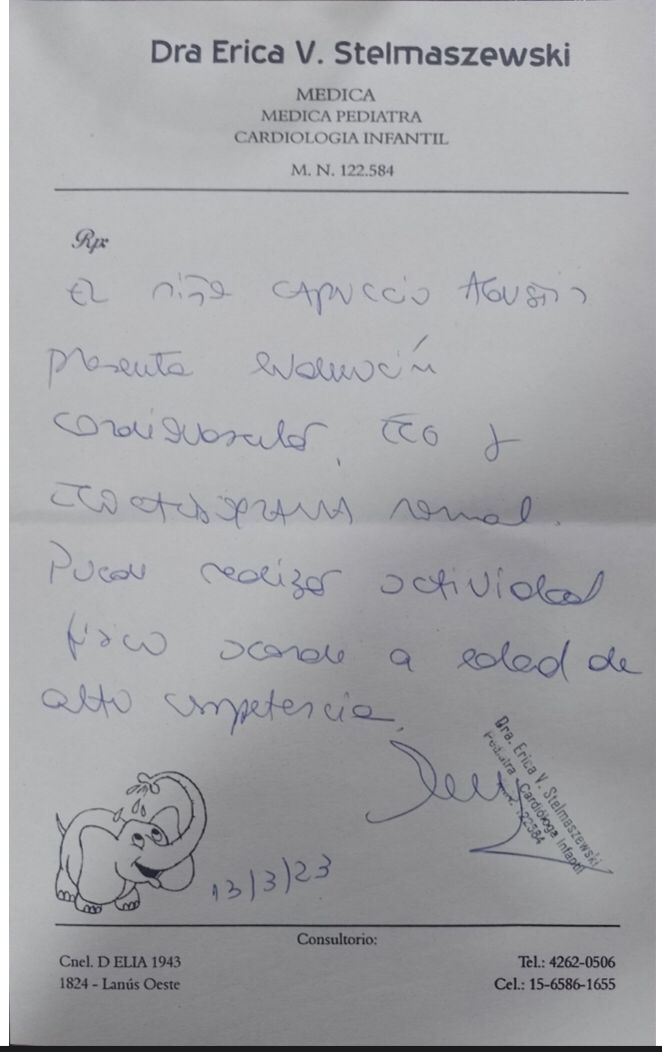 Dra Erica V. Stelmaszewski
MEDICA
MEDICA PEDIATRA
CARDIOLOGIA INFANTIL
M. N. 122.584
Rp
El niño CAPUCCIO AGUSTIN
presenta evaluación
cardiovascular, ECG y
normal.
Puede realizar actividad
física acorde a edad de
alta competencia.
Dra. Erica V. Stelmaszewski
Pediatra - Cardióloga Infantil
122584
13/3/23
Consultorio:
Cnel. D ELIA 1943
Tel.: 4262-0506
1824 - Lanús Oeste
Cel.: 15-6586-1655